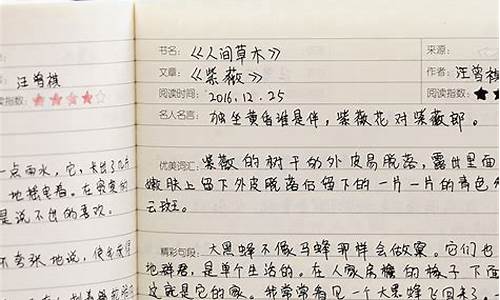 汪曾祺
阅读指数：★★★★☆
一点雨水，它，卡出了几片
地摇曳着。在寂寞的
是说不出的喜欢。
不夸张地说，使
书名：《人间草木》
来源：
文章：《紫薇》
作者：汪曾祺
阅读时间：2016.12.25
阅读指数：★★
名人名言：独坐黄昏谁是伴，紫薇花对紫薇郎。
优美词汇：紫薇的树干的外皮易脱落，露出里面
嫩肤上留下外皮脱落后留下的一片一片的青色
云斑。
精彩句段：大黑蜂不像马蜂那样会做窠。它们也
地群居，是单个生活的。在人家房檐的椽子下面
这就是它的家。我常常看见一个大黑蜂飞回来了